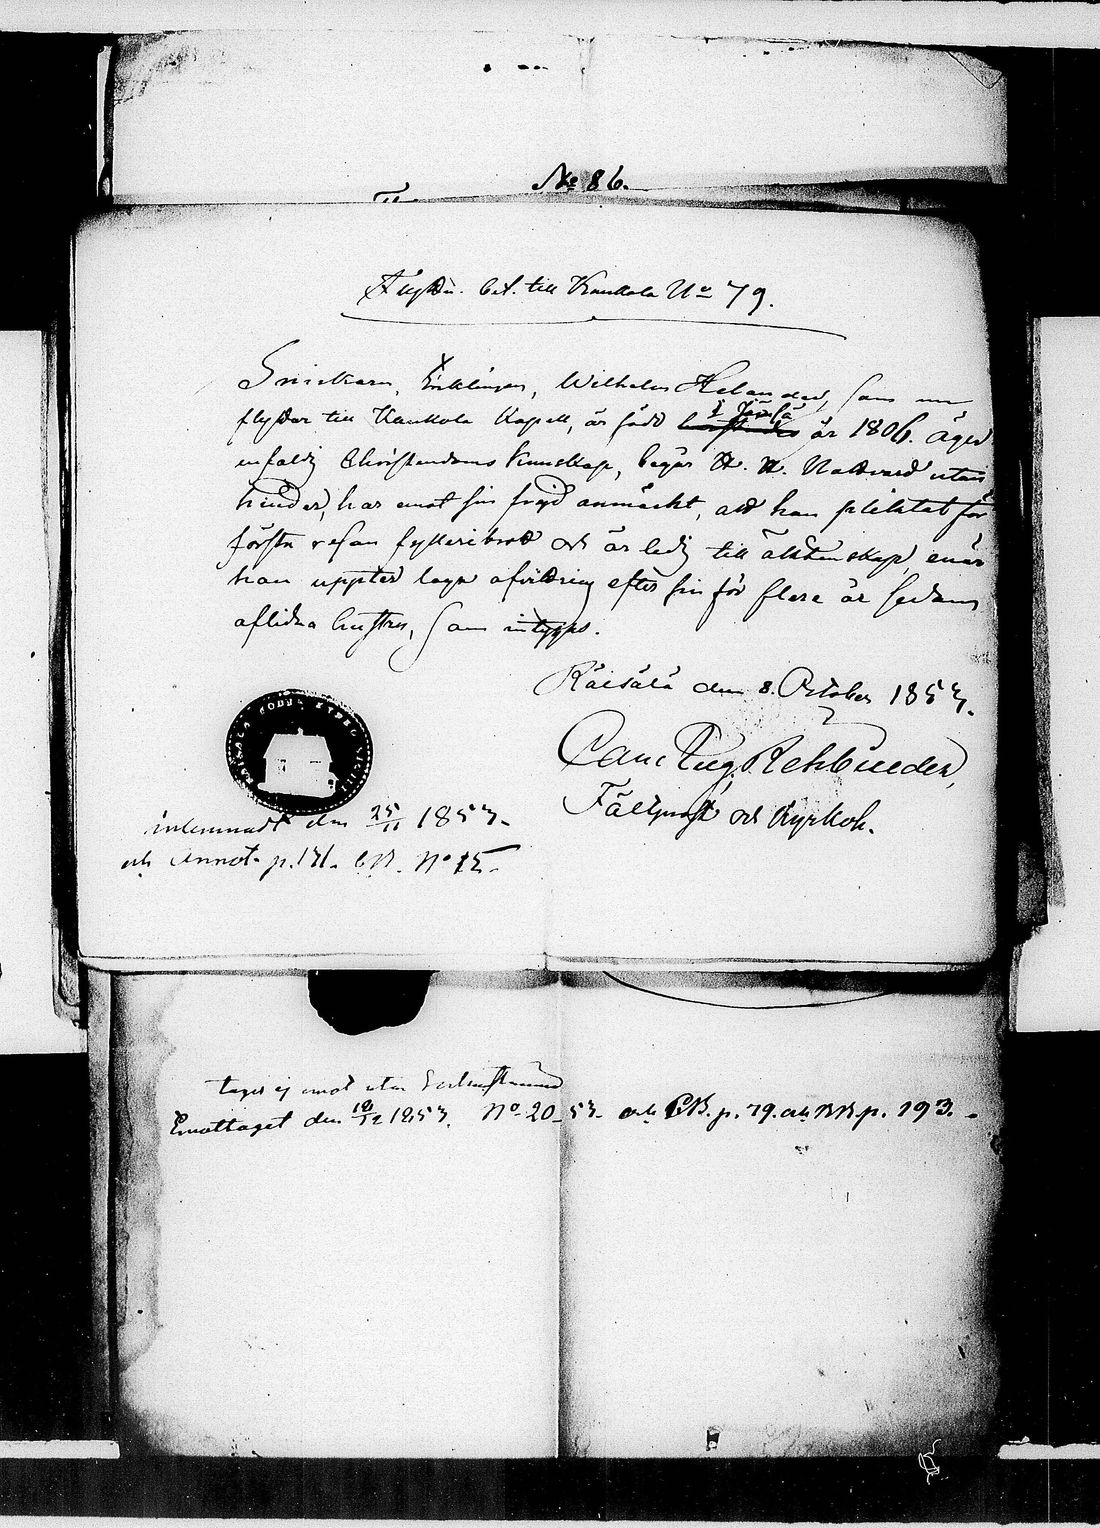 No 86.
Flyttn. bet. till Kaukola No 79.
Snickaren, Enklingen, Wilhelm Helander, som nu
flyttar till Kaukola Kapell, är född i år 1806. Äger
enfaldig Christendoms Kunskap, begår H. H. Nattvard utan
hinder, har emot sin frejd anmärkt, att han pliktat för
första resan fylleribrott och är ledig till äktenskap, enär
han uppter laga afvittring efter sin för flere år sedan
aflidna hustru, som intygas.
Räisälä den 8. October 1853.
Carl Aug. Rehbinder,
Fältprost och Kyrkoh.
inlemnadt den 25/11 1853.
och Annot. p. 141. No 15.
tages ej emot utan
Emottaget den 18/12 1853. No 20 53. och CB. p. 79. och BB p. 193.